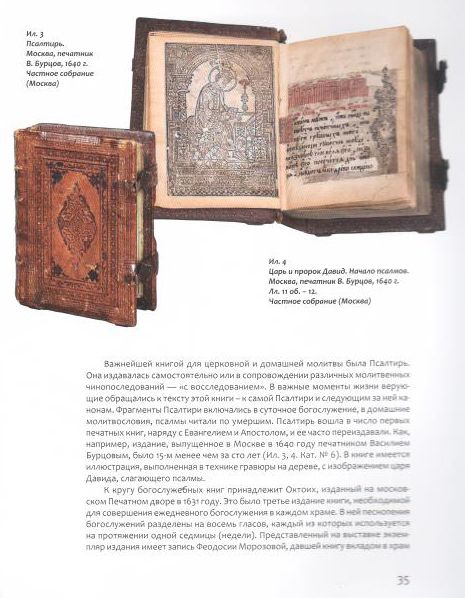 Ил. 3
Псалтирь.
Москва, печатник
В. Бурцов, 1640 г.
Частное собрание
(Москва)
Ил. 4
Царь и пророк Давид. Начало псалмов.
Москва, печатник В. Бурцов, 1640 г.
Лл. 11 об. – 12.
Частное собрание (Москва)
Важнейшей книгой для церковной и домашней молитвы была Псалтирь.
Она издавалась самостоятельно или в сопровождении различных молитвенных
чинопоследований — «с восследованием». В важные моменты жизни верую-
ющие обращались к тексту этой книги – к самой Псалтири и следующим за ней ка-
нонам. Фрагменты Псалтири включались в суточное богослужение, в домашние
молитвословия, псалмы читали по умершим. Псалтирь вошла в число первых
печатных книг, наряду с Евангелием и Апостолом, и ее часто переиздавали. Как,
например, издание, выпущенное в Москве в 1640 году печатником Василием
Бурцовым, было 15-м менее чем за сто лет (Ил. 3, 4. Кат. № 6). В книге имеется
иллюстрация, выполненная в технике гравюры на дереве, с изображением царя
Давида, слагающего псалмы.
К кругу богослужебных книг принадлежит Октоих, изданный на москов-
ском Печатном дворе в 1631 году. Это было третье издание книги, необходимой
для совершения ежедневного богослужения в каждом храме. В ней песнопения
богослужений разделены на восемь гласов, каждый из которых используется
на протяжении одной седмицы (недели). Представленный на выставке экзем-
пляр издания имеет запись Феодосии Морозовой, давшей книгу вкладом в храм
35